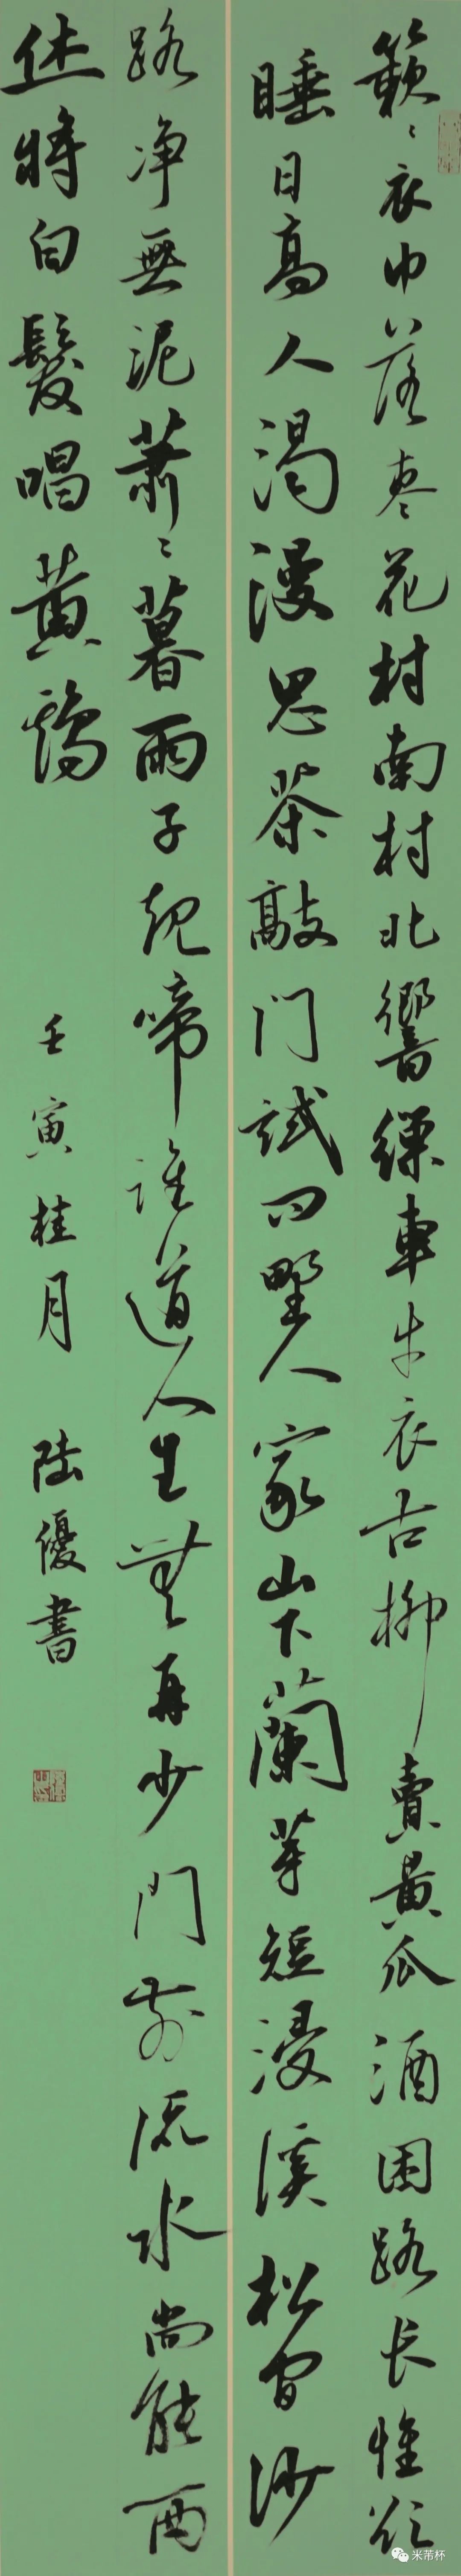 簌〻衣巾落棗花村南村北響繰車牛衣古柳賣黄瓜酒困路长惟欲
睡日高人渴漫思茶敲门試问野人家山下蘭芽短浸溪松间沙
路净無泥蕭〻暮雨子規啼誰道人生無再少門前流水尚能西
休將白髮唱黄鷄
壬寅桂月 陸優書
米芾杯